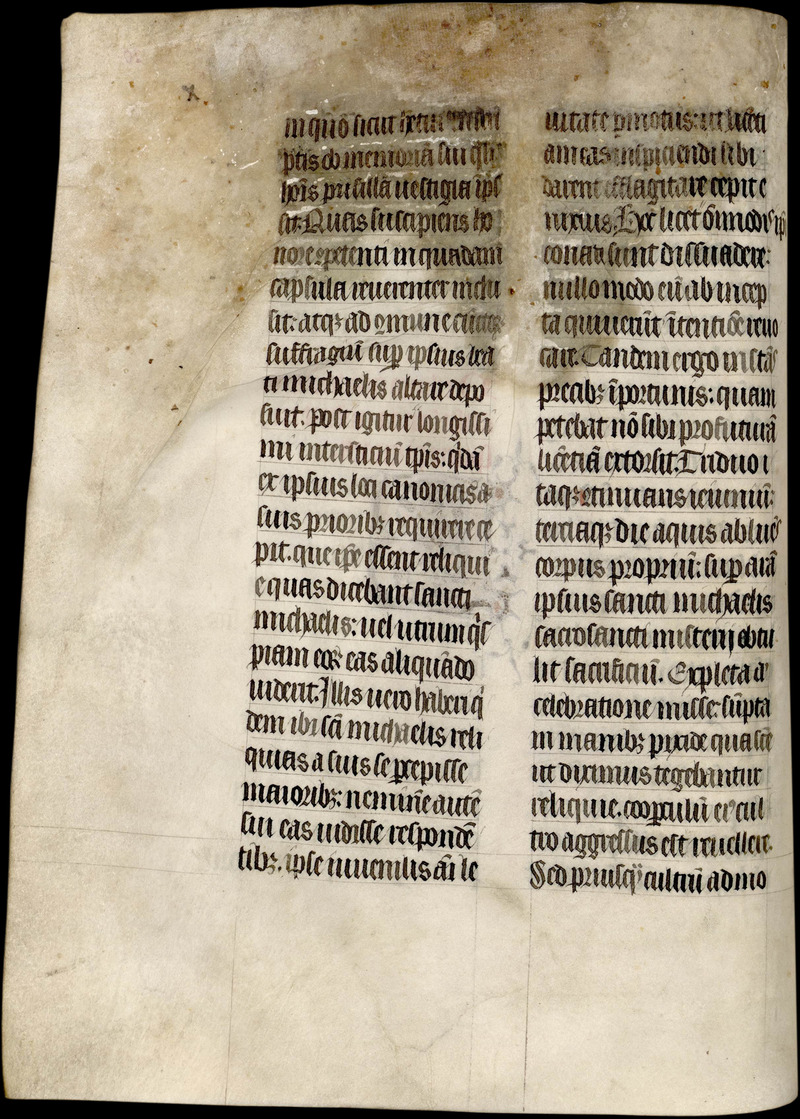 in quo sicut
ptis ob memoriā sui
lpis pusilla uestigia ips
sit. Quas suscipiens ho
no expetenti in quadam
capsula reuerenter inclu
sit: atqꝫ ad omune
suffragiū suꝑ ipsius bea
ti michaelis altare depo
suit. post igitur longissi
mi intersticiū tp̄is: q̇dā
ex ipsius loci canonicis a
suis prioribꝫ requirere ce
pit. que ip̄e essent reliqui
e quas dicebant sancti
michaelis: uel utrum q̇s
piam eoꝝ eas aliquādo
uident. Illis uero haberi q̇
dem ibi sc̄i michaelis reli
quias a suis se ꝑcepisse
maioribꝫ: neminē autē
sui eas uidisse respondē
tibꝫ. ipse iuuenilis āi le
uitate ꝓmotus: ut licēti
am eas inspiciendi sibi
darent efflagitare cepit e
nixius. Hec licet ōmodis ip̄i
conati sunt dissuadere:
nullo modo eū ab incep
ta quiuerūt ītentiōe reuo
care. Tandem ergo instās
precibꝫ īportunis: quam
petebat nō sibi profuturā
licētiā extorsit. Triduo i
taqꝫ etinuans ieiuniū:
terciaqꝫ die aquis abluēs
corpus propriū: suꝑ arā
ipsius sancti michaelis
sacrosancti misterij obtu
lit sacrificiū. Expleta a͛
celebratione misse: sūpta
in manibꝫ pixide qua sic̄
ut diximus tegebantur
reliquie. cooꝑculū ei͛ cul
tro aggressus est reuellere.
Sed priusq̄ cultrū admo